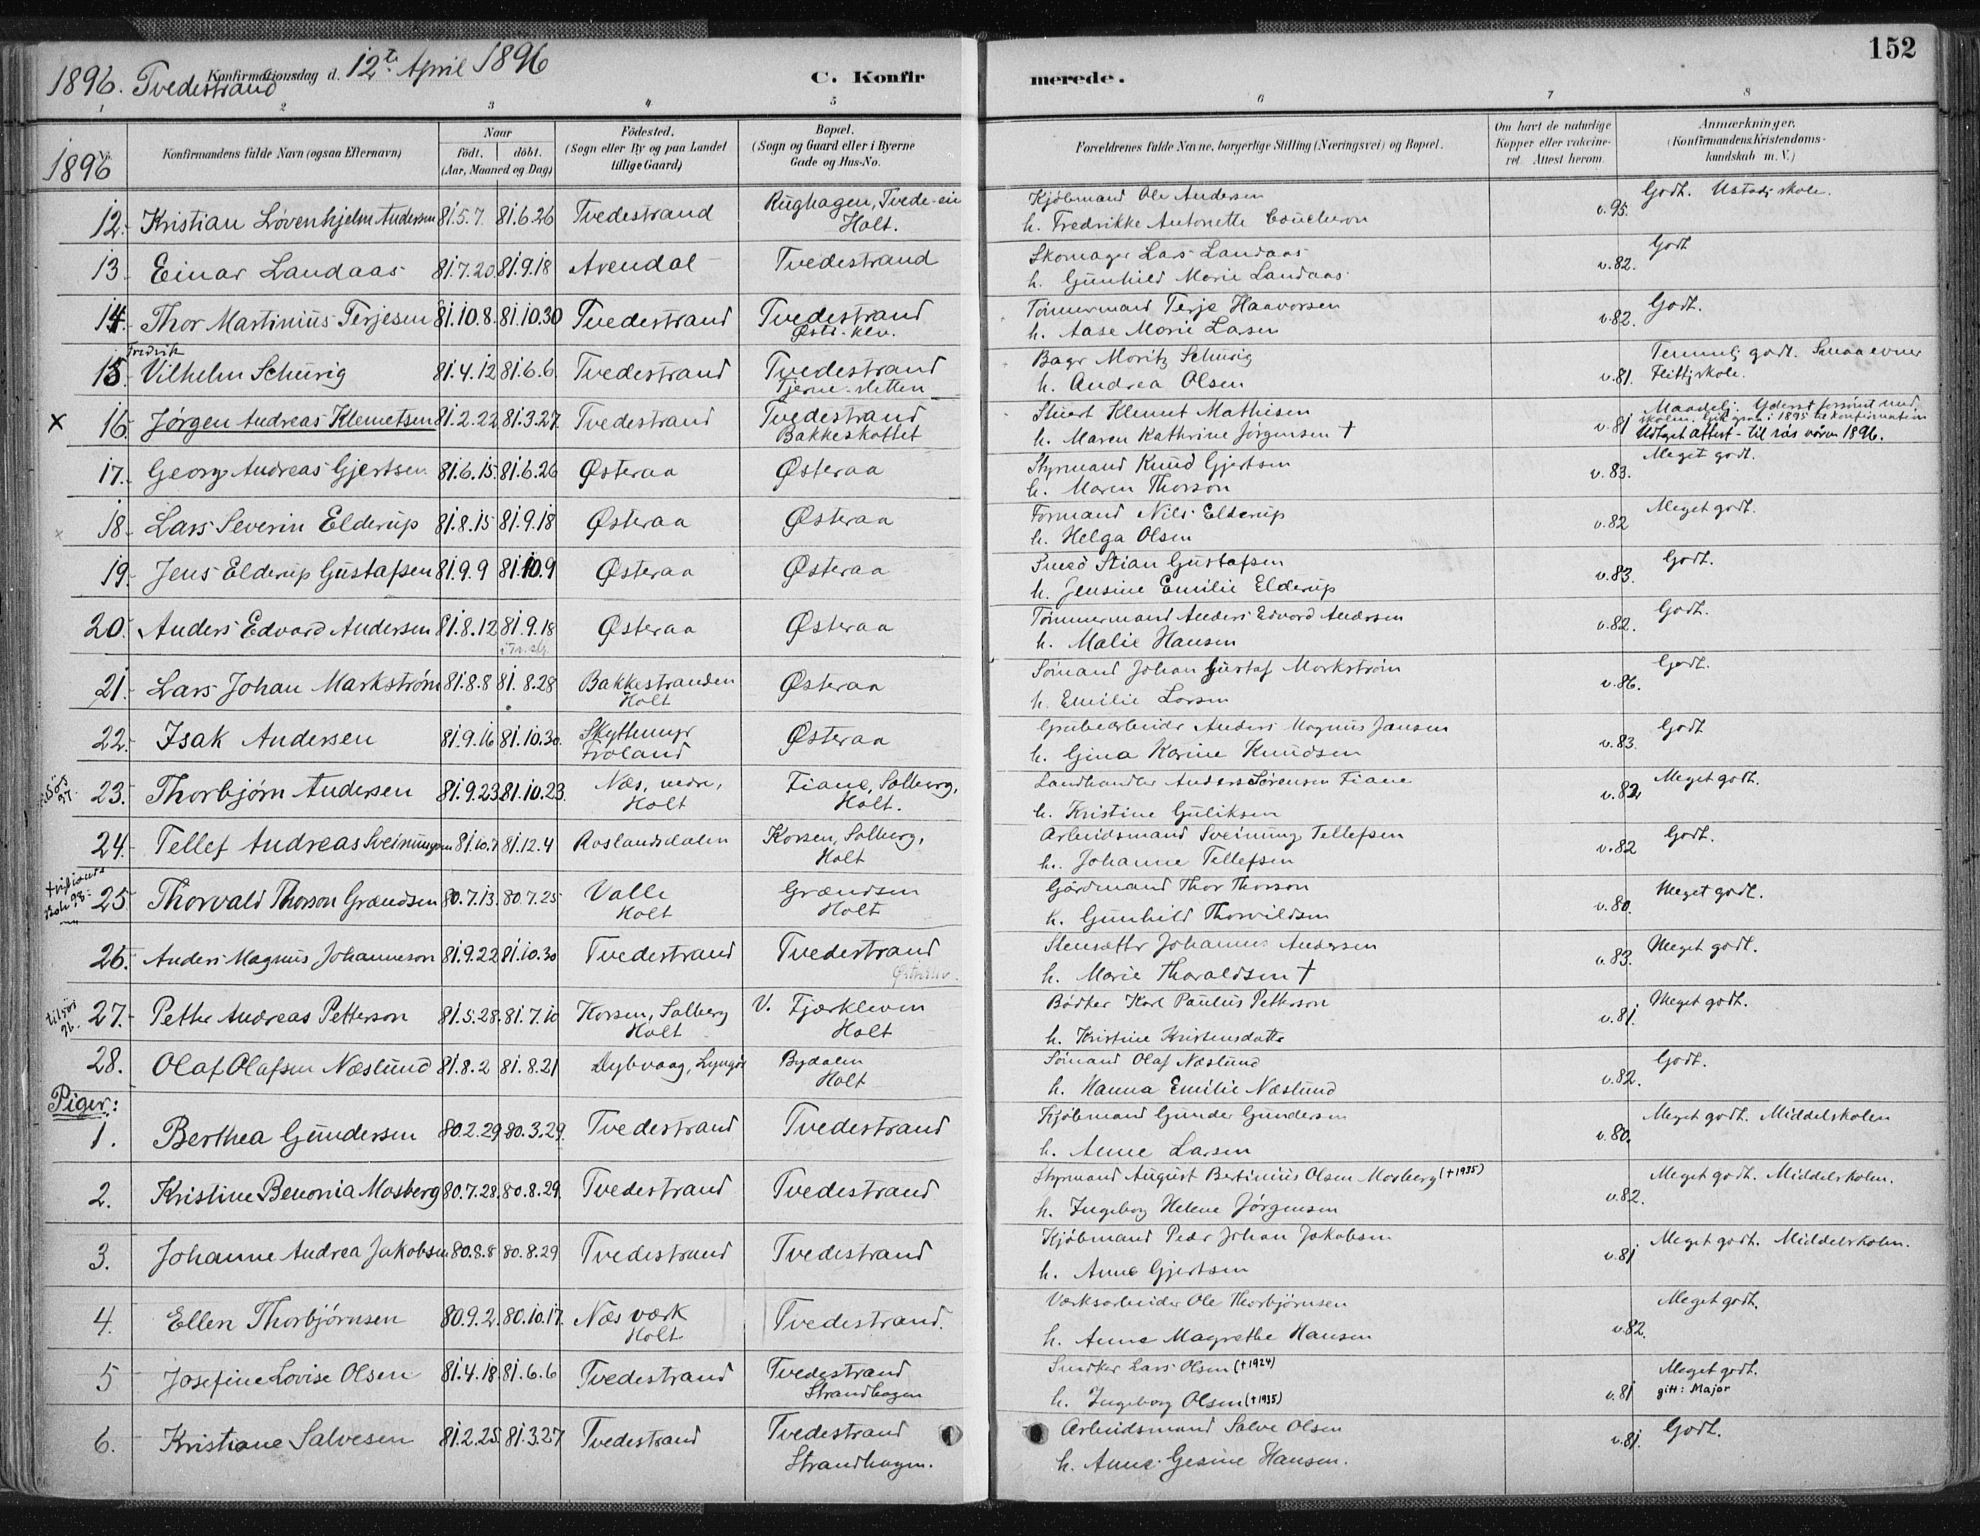 152
1896. Tvedestrand Konfirmationsdag d. 12te April 1896 C. Konfirmerede.
1 2 3 4 5 6 7 8
1896 Konfirmandens fulde Navn (ogsaa Efternavn) Naar födt. döbt. (Aar, Maaned og Dag) Födested. (Sogn eller By og paa Landet tillige Gaard) Bopæl. (Sogn og Gaard eller i Byerne Gade og Hus-No. Forældrenes fulde Navne, borgerlige Stilling (Næringsvei) og Bopæl. Om havt de naturlige Kopper eller vakcineret. Attest herom. Anmærkninger. (Konfirmandens Kristendomskundskab m. V.)
12. Kristian Løvenhjelm Andersen 81.5.7 81.6.26 Tvedestrand Rughagen, Holt. Kjøbmand Ole Andersen
h. Fredrikke Antonette Coucheron v.95. Godt.
13. Einar Landaas 81.7.20 81.9.18 Arendal Tvedestrand Skomager Lars Landaas
h. Gunhild Marie Landaas v.82. Godt
14. Thor Martinius Terjesen 81.10.8. 81.10.30 Tvedestrand Tvedestrand Tømmermand Terje Haavorsen
h. Aase Marie Larsen v.82. Godt.
15. Fredrik Vilhelm Schurig 81.4.12 81.6.6. Tvedestrand Tvedestrand Tjerne-sletten Bager Moritz Schurig
h. Andrea Olsen v.81. Temmelig godt. Smaa evner
Flittig skole.
x 16. Jørgen Andreas Klemetsen 81.2.22 81.3.27 Tvedestrand Tvedestrand Bakkeskottet Stuert Klemet Mathisen
h. Maren Kathrine Jørgensen † v.81 Maadelig. Yderst forsømt med
skolen. 1895 konfirmation
Udtaget attest - til 1896.
17. Georg Andreas Gjertsen 81.6.15. 81.6.26 Østeraa Østeraa Styrmand Knud Gjertsen
h. Maren Thorson v.83. Meget godt.
18. Lars Severin Elderup 81.8.15 81.9.18 Østeraa Østeraa Formand Nils Elderup
h. Helga Olsen v.82 Meget godt.
19. Jens Elderup Gustafsen 81.9.9 81.10.9 Østeraa Østeraa Smed Stian Gustafsen
h. Jensine Emilie Elderup v.83. Godt.
20. Anders Edvard Andersen 81.8.12 81.9.18 Østeraa Østeraa Tømmermand Anders Edvard Andersen
h. Malie Hansen v.82. Godt.
21. Lars Johan Markstrøm 81.8.8 81.8.28 Bakkestranden Holt Østeraa Sømand Johan Gustaf Markstrøm
h. Emilie Larsen v.86. Godt.
22. Isak Andersen 81.9.16 81.10.30. Skyttemyr Froland Østeraa Grubearbeider Anders Magnus Jansen
h. Gina Karine Knudsen v.83. Godt
23. Thorbjørn Andersen 81.9.23. 81.10.23. Næs, nedre, Holt Fiane, Solberg, Holt. Landhandler Anders Sørensen Fiane
h. Kristine Guliksen v.82. Meget godt.
24. Tellef Andreas Sveinungsen 81.10.7 81.12.4 Roslandsdalen Korsen, Solberg, Holt Arbeidsmand Sveinung Tellefsen
h. Johanne Tellefsen v.82 Godt.
25 Thorvald Thorson Grændsen 80.7.13. 80.7.25 Valle Holt Grændsen Holt Gårdmand Thor Thorson
h. Gunhild Thorvildsen v.80. Meget godt.
26. Anders Magnus Johannesen 81.9.22 81.10.30 Tvedestrand Tvedestrand Stensætter Johannes Andersen
h. Marie Tharaldsen † v.83. Meget godt.
27. Petter Andreas Petterson 81.5.28. 81.7.10 Korsen, Solberg Holt V. Fjærkleven Holt Bødker Karl Paulus Petterson
h. Kristine Kristensdatter v.81. Meget godt.
28. Olaf Olafsen Næslund 81.8.2 81.8.21 Dybvaag, Lyngør Bydalen Holt Sømand Olaf Næslund
h. Hanna Emilie Næslund v.82. Godt.
Piger:
1. Berthea Gundersen 80.2.29 80.3.29. Tvedestrand Tvedestrand Kjøbmand Gunder Gundersen
h. Anne Larsen v.80. Meget godt. Middelskolen
2. Kristine Benonia Mosberg 80.7.28. 80.8.29. Tvedestrand Tvedestrand Styrmand August Bertinius Olsen Mosberg (†1935)
h. Ingeborg Helene Jørgensen v.82. Meget godt. Middelskolen.
3. Johanne Andrea Jakobsen 80.8.8 80.8.29 Tvedestrand Tvedestrand Kjøbmand Peder Johan Jakobsen
h. Anne Gjertsen v.81 Meget godt. Middelskolen.
4. Ellen Thorbjørnsen 80.9.2. 80.10.17. Næs værk Holt Tvedestrand. Værksarbeider Ole Thorbjørnsen
h. Anne Magrethe Hansen v.82. Meget godt.
5 Josefine Lovise Olsen 81.4.18. 81.6.6 Tvedestrand Tvedestrand Strandhagen Snedker Lars Olsen (†1924)
h. Ingeborg Olsen (†1935) v.81 Meget godt.
gift: Major
6. Kristiane Salvesen 81.2.25. 81.3.27 Tvedestrand Tvedestrand Strandhagen. Arbeidsmand Salve Olsen
h. Anne Gesine Hansen. v.81. Godt.